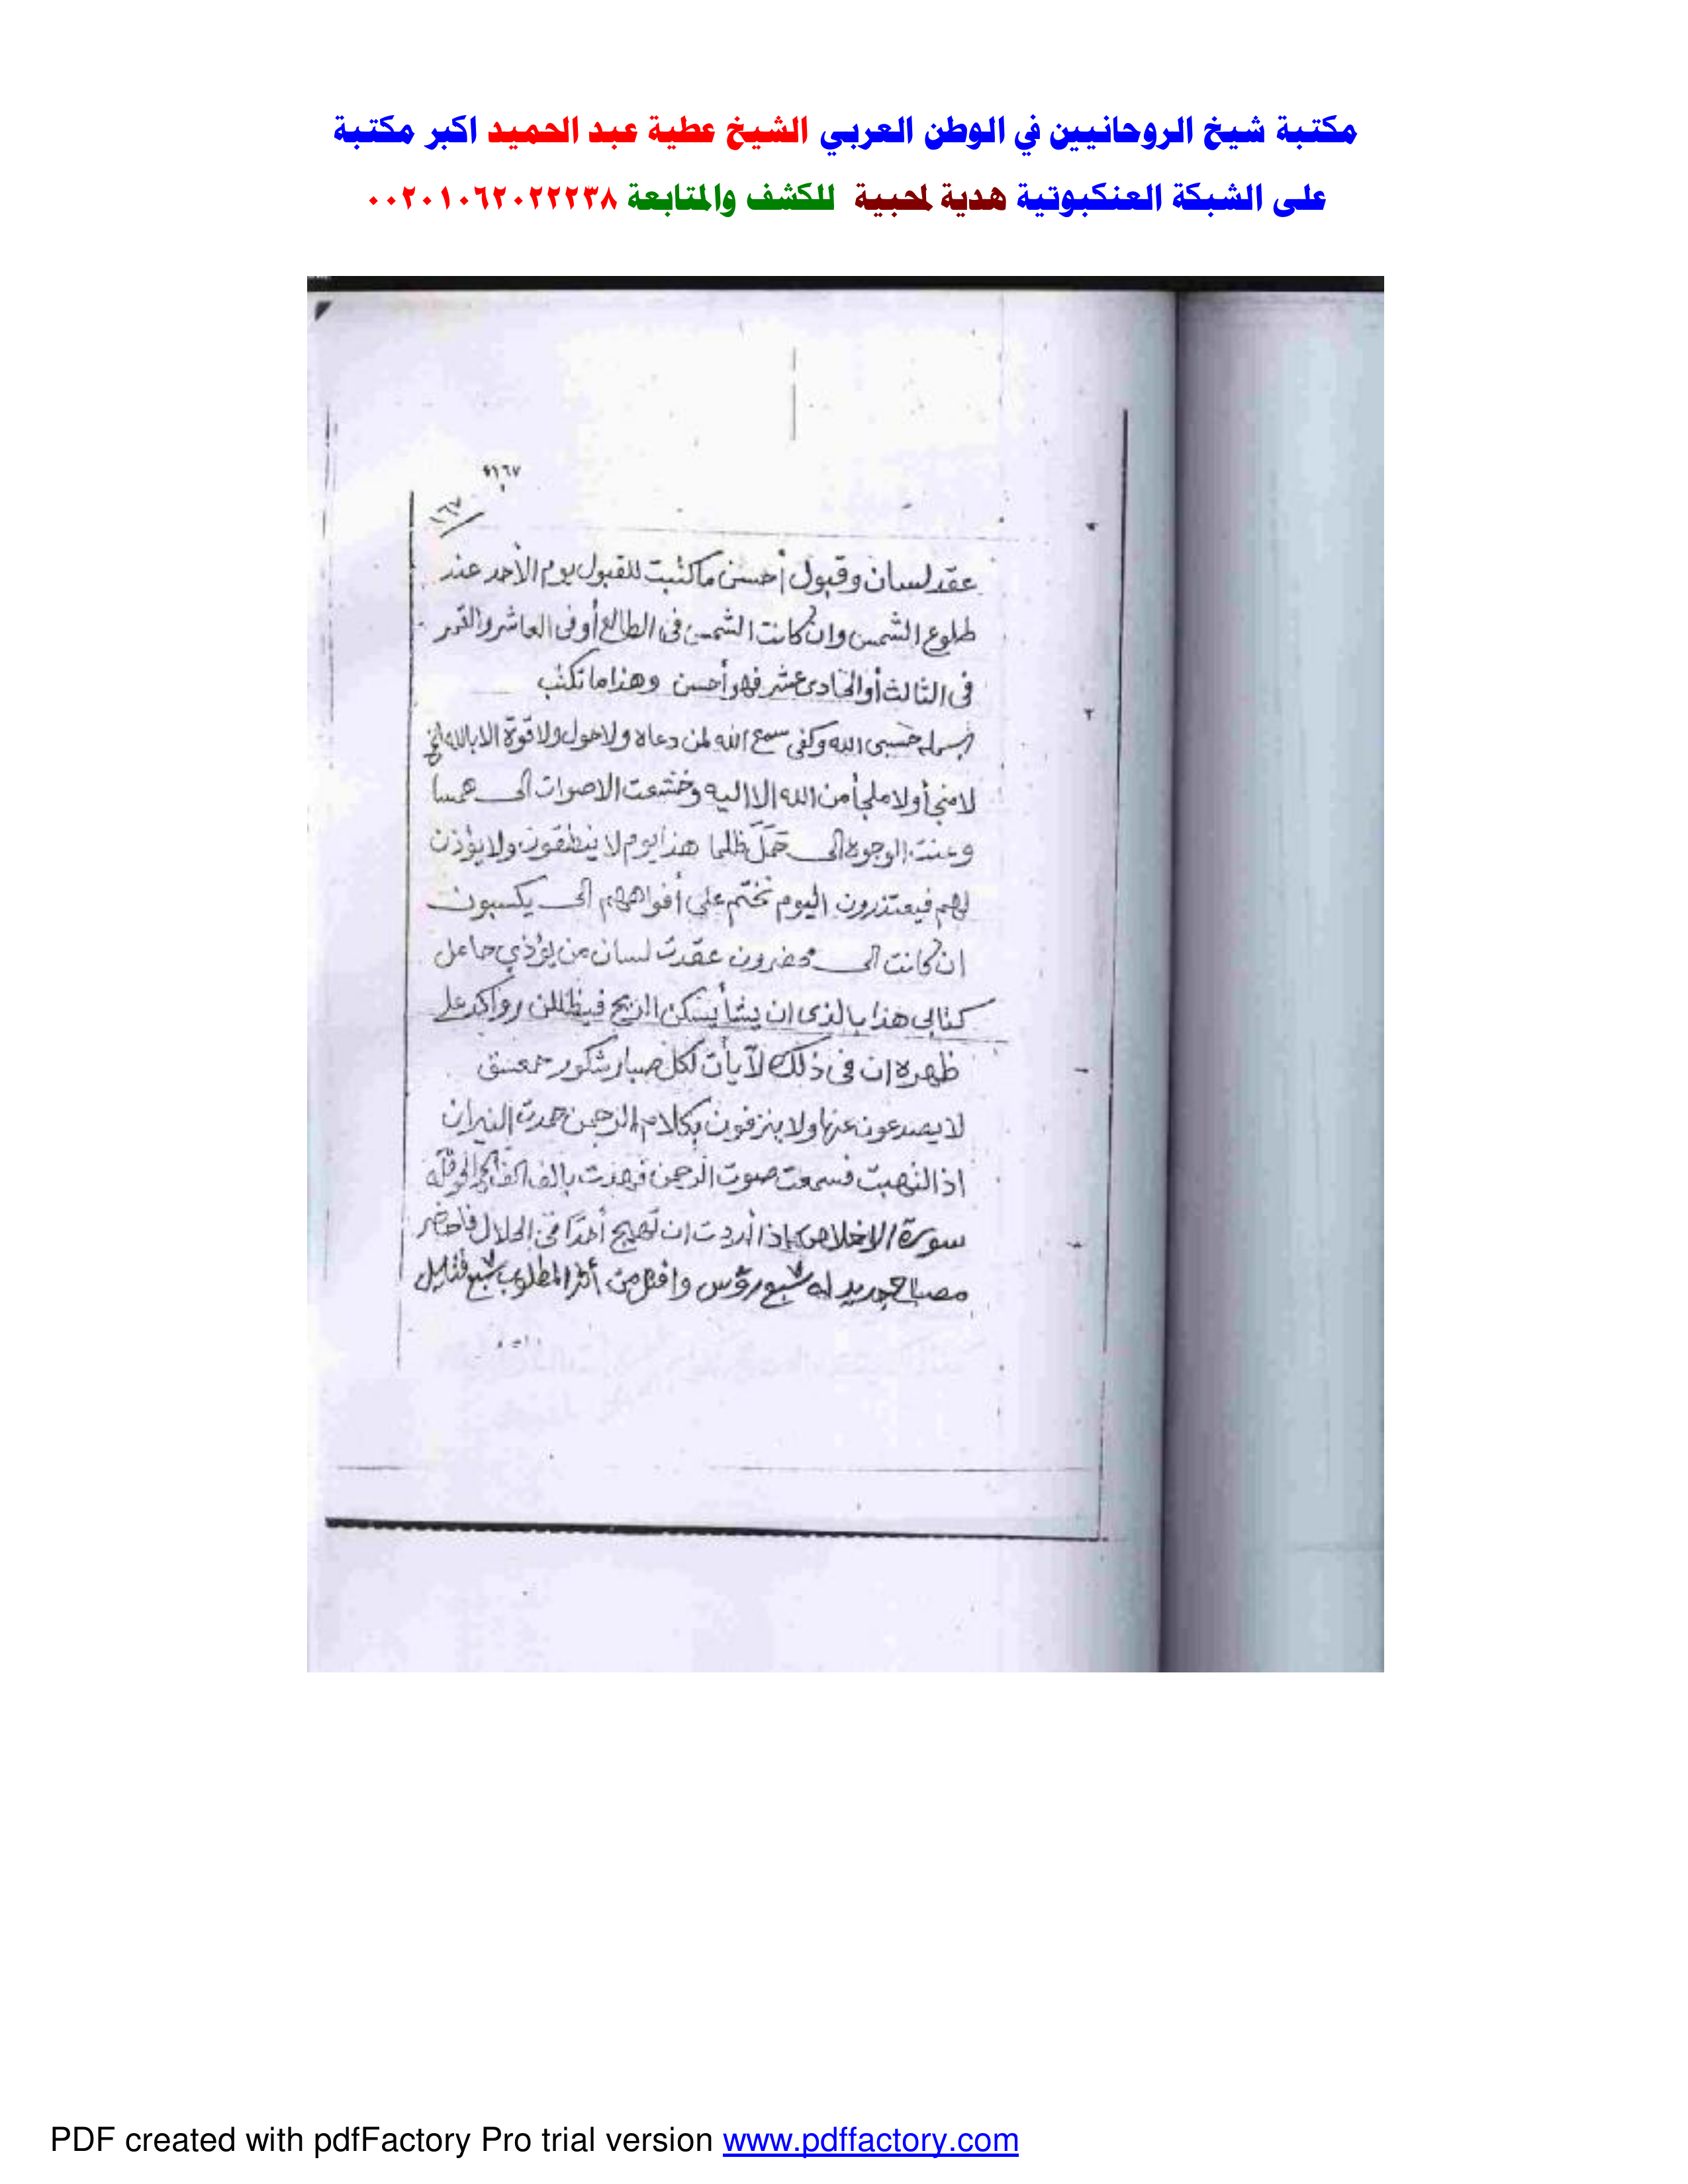 مكتبة شيخ الروحانيين في الوطن العربي الشيخ عطية عبد الحميد اكبر مكتبة
على الشبكة العنكبوتية هدية لمحبيية للكشف والمتابعة ٠٠٢٠١٠٦٢٠٢٢٢٣٨
١٦٧
١٦٧
عقد لسان وقبول أحسن ما كتبت للقبول يوم الأحد عند
طلوع الشمس وان كانت الشمس فى الطالع أو فى العاشر والقمر
فى الثالث أو الحادى عشر فهو أحسن وهذا ما تكتب
حسبى الله وكفى سمع الله لمن دعاه ولا حول ولا قوة الا بالله
لا منجأ ولا ملجأ من الله الا اليه وخشعت الاصوات الى همسا
وعنت الوجوه الى حمل ظلما هذا يوم لا ينطقون ولا يؤذن
لهم فيعتذرون اليوم نختم على أفواههم الى يكسبون
ان كانت الى محضرون عقدت لسان من يؤذي حامل
كتابى هذا بالذى ان يشأ يسكن الريح فيظللن رواكد على
ظهره ان فى ذلك لآيات لكل صبار شكور حمعسق
لا يصدعون عنها ولا ينزفون بكلام الرحمن خمدت النيران
اذا التهبت فسمعت صوت الرحمن فهدت بالف الف
سورة الاخلاص اذا أردت ان تهيج أحدًا فى الحلال فاحضر
مصباح جديد له سبع رؤس وافتل من أثر المطلوب سبع فتايل
PDF created with pdfFactory Pro trial version www.pdffactory.com